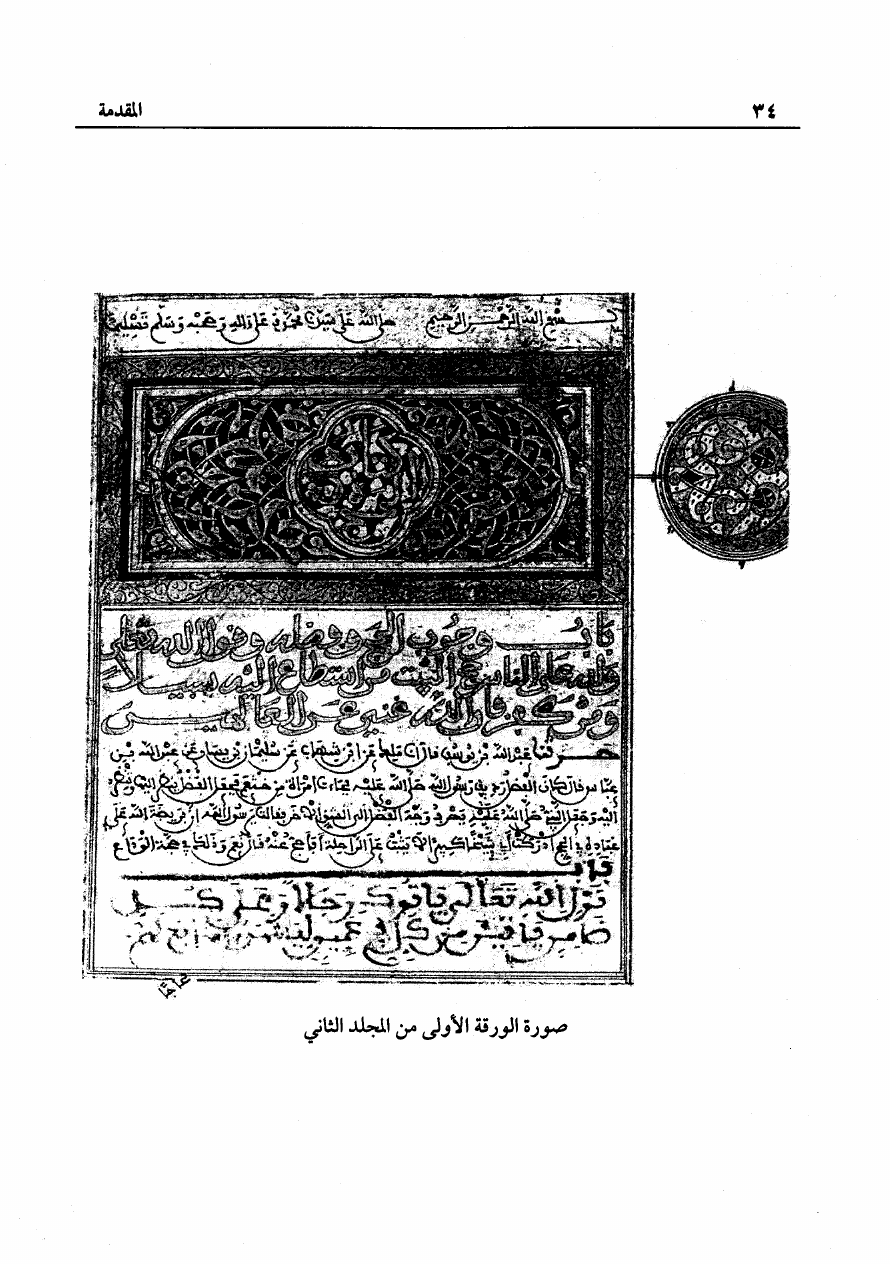 ٣٤
المقدمة
بسم الله الرحمن الرحيم صلى الله على سيدنا محمد وعلى ءاله وصحبه وسلم تسليما
كتاب
باب وجوب الحج وفضله وقول الله تعلى
ولله على الناس حج البيت من استطاع اليه سبيلا
ومن كفر فإن الله غني عن العالمين
حدثنا عبد الله بن يوسف قال أنا ملك عن ابن شهاب عن سليمان بن يسار عن عبد الله بن
عباس قال كان الفضل رديف رسول الله صلى الله عليه فجاءت امرأة من خثعم فجعل الفضل ينظر اليها وتنظر
اليه وجعل النبي صلى الله عليه يصرف وجه الفضل الى الشق الاخر فقالت يا رسول الله ان فريضة الله على
عباده في الحج ادركت ابي شيخا كبيرا لا يثبت على الراحلة أفأحج عنه قال نعم وذلك في حجة الوداع
باب
قول الله تعالى ياتوك رجالا وعلى كل
ضامر ياتين من كل فج عميق ليشهدوا منافع لهم
صورة الورقة الأولى من المجلد الثاني